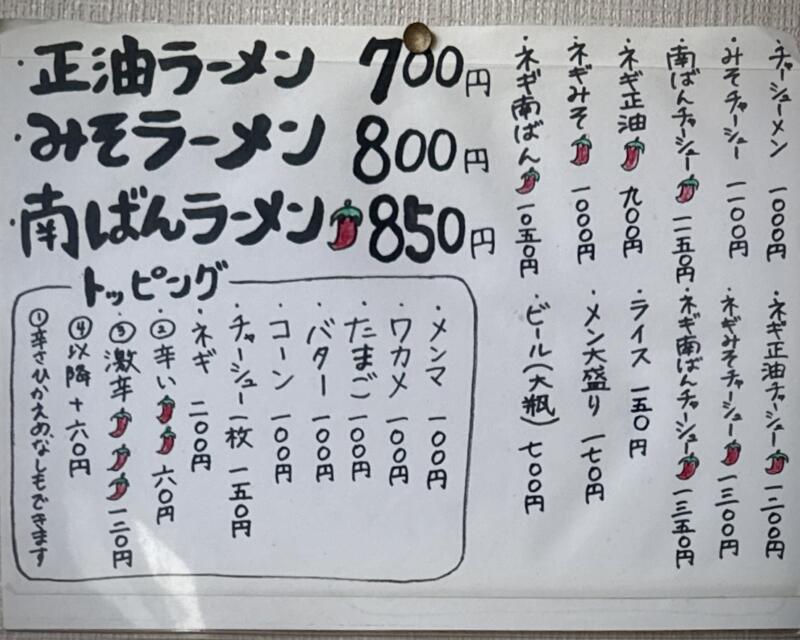 ・正油ラーメン 700円
・みそラーメン 800円
・南ばんラーメン 850円
・チャーシューメン 一〇〇〇円
・みそチャーシュー 一一〇〇円
・南ばんチャーシュー 一一五〇円
・ネギ正油 九〇〇円
・ネギみそ 一〇〇〇円
・ネギ南ばん 一〇五〇円
・ネギ正油チャーシュー 一二〇〇円
・ネギみそチャーシュー 一三〇〇円
・ネギ南ばんチャーシュー 一三五〇円
・ライス 一五〇円
・メン大盛り 一七〇円
・ビール(大瓶) 七〇〇円
トッピング
・メンマ 一〇〇円
・ワカメ 一〇〇円
・たまご 一〇〇円
・バター 一〇〇円
・コーン 一〇〇円
・チャーシュー一枚 一五〇円
・ネギ 二〇〇円
・②辛い 六〇円
③激辛 一二〇円
④以降 +六〇円
①辛さひかえめ、なしもできます